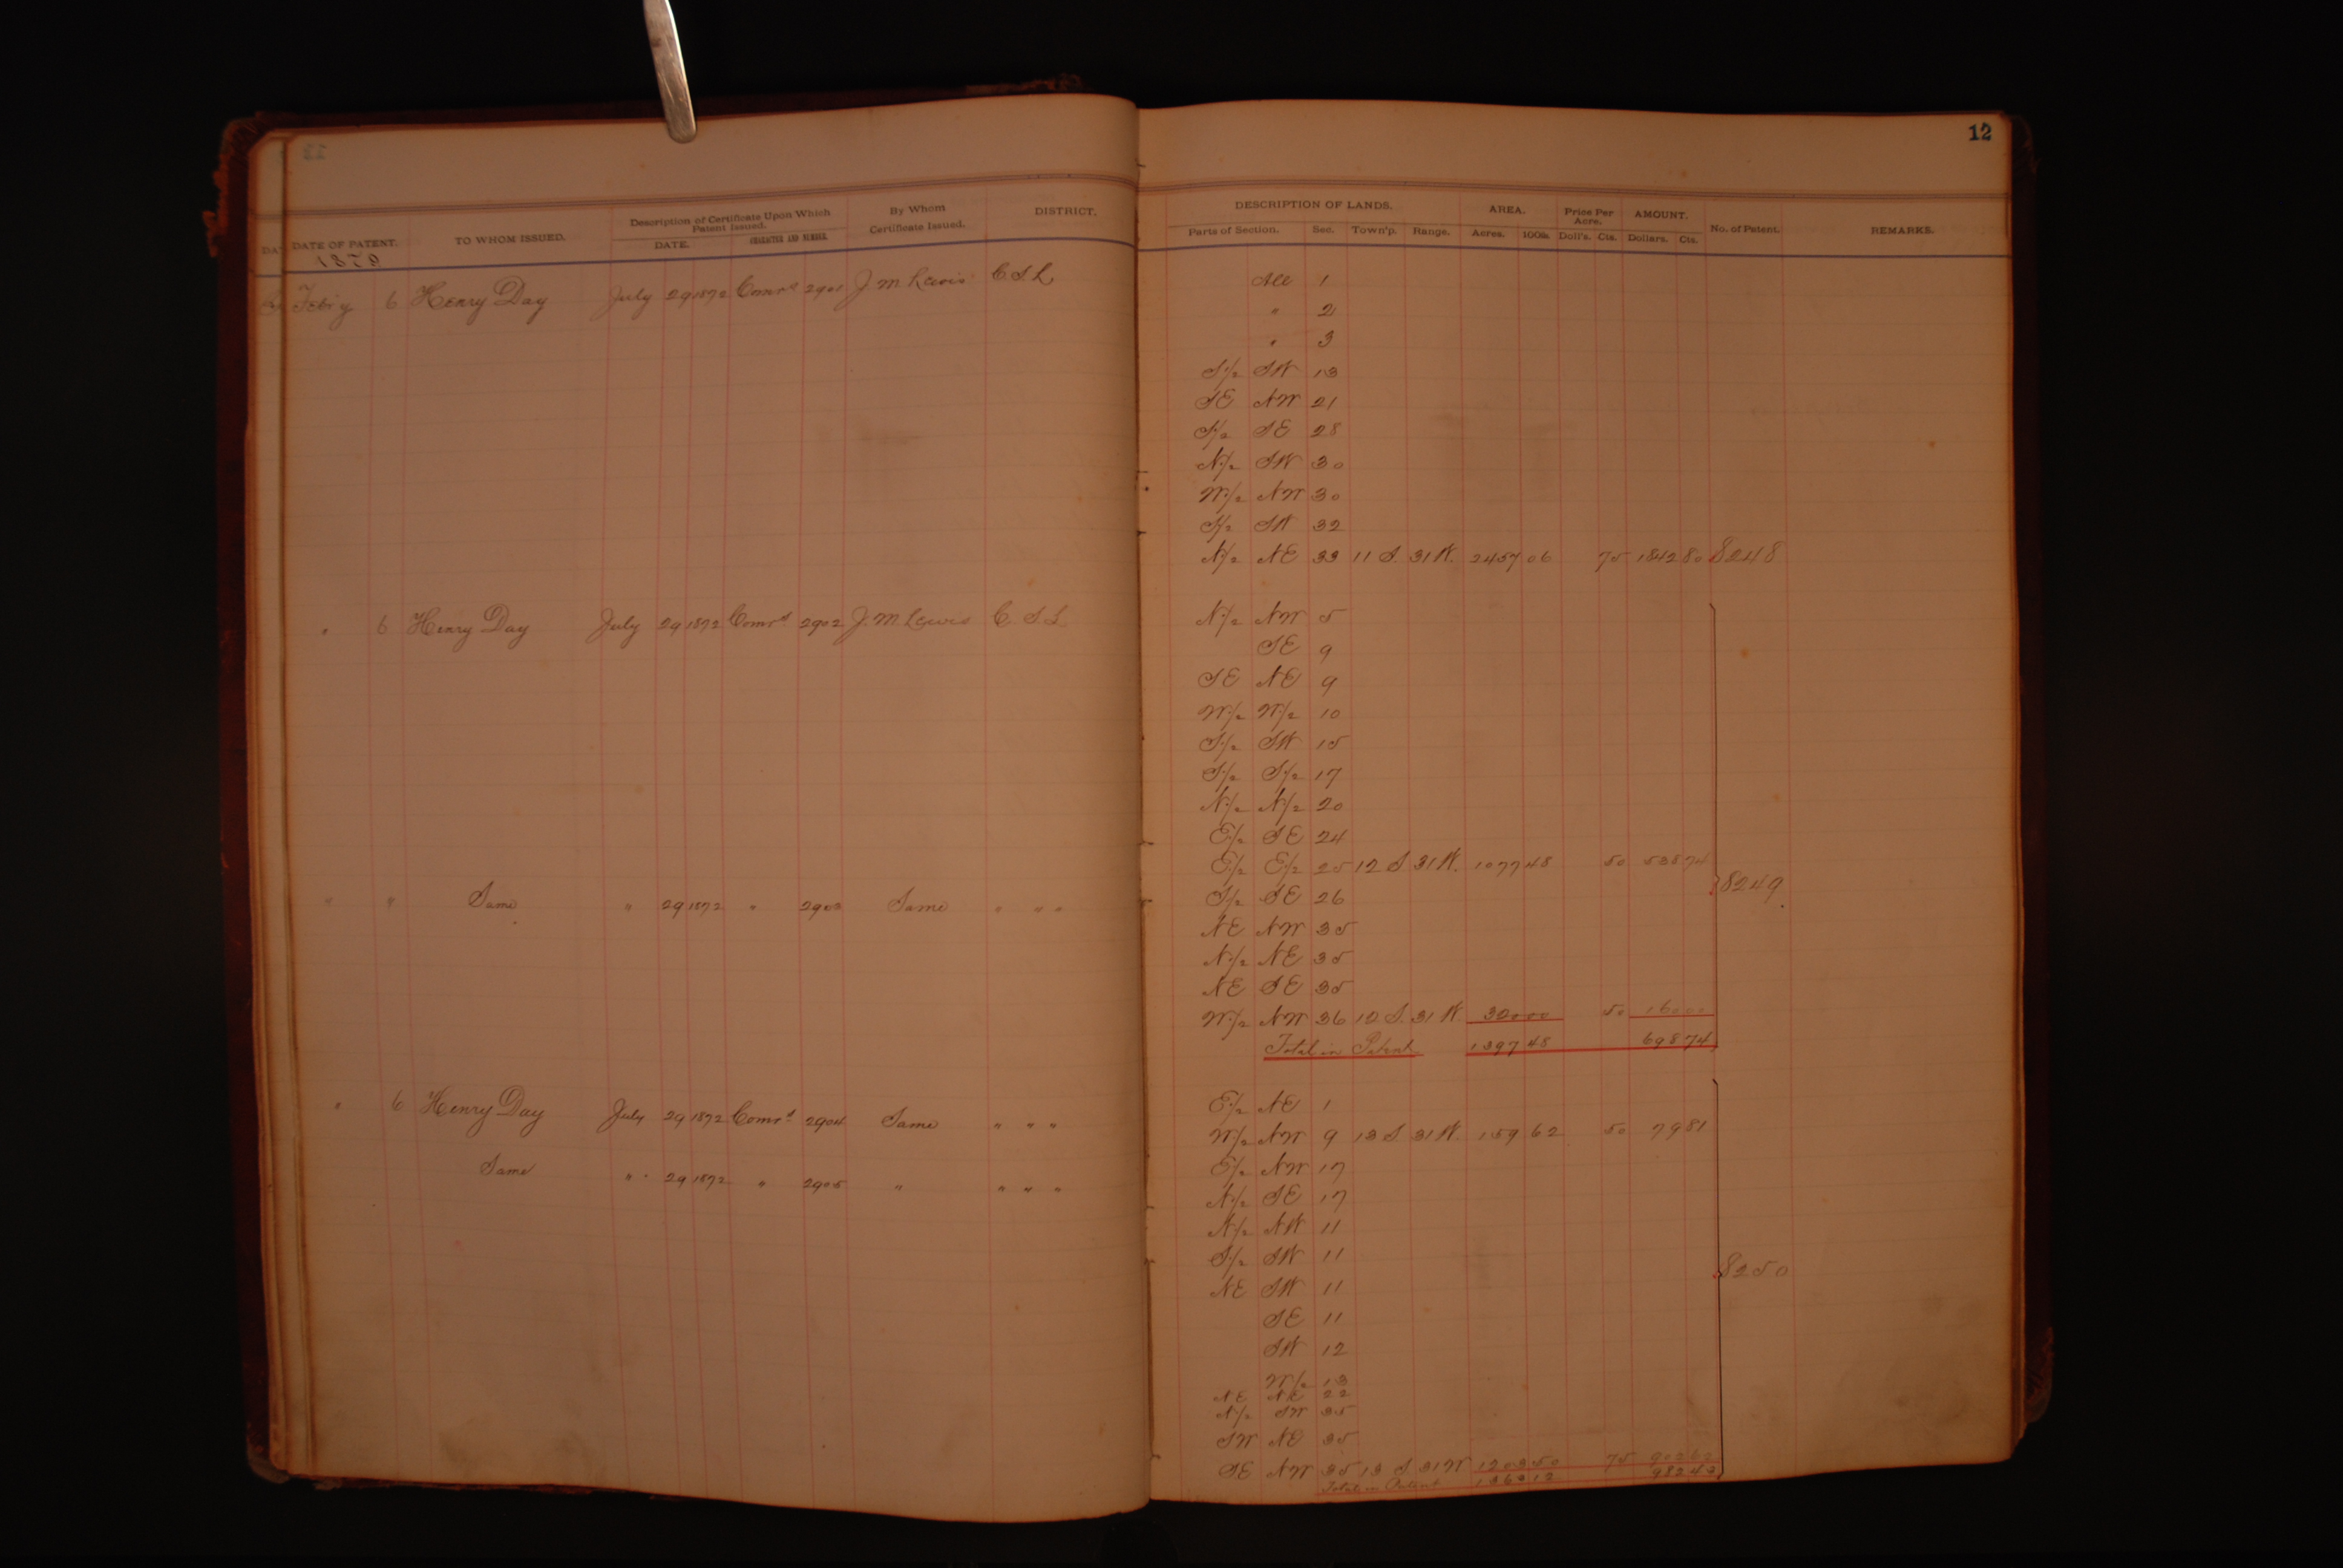 12
DATE OF PATENT. TO WHOM ISSUED. Description of Certificate Upon Which Patent Issued. DATE. CHARACTER AND NUMBER. By Whom Certificate Issued. DISTRICT.
DESCRIPTION OF LANDS. Parts of Section. Sec. Town'p. Range. AREA. Acres. 100ths. Price Per Acre. Doll's. Cts. AMOUNT. Dollars. Cts. No. of Patent. REMARKS.
1879
Feb'y 6 Henry Day July 29 1872 Comr's 2901 J. M Lewis C. S L All 1
" 2
" 3
S/2 SW 13
SE NW 21
S/2 SE 28
N/2 SW 30
W/2 NW 30
S/2 SW 32
N/2 NE 33 11 S. 31 W. 2457 06 75 1842 80 8248
" 6 Henry Day July 29 1872 Comr's 2902 J. M Lewis C. S. L N/2 NW 5
SE 9
SE NE 9
W/2 W/2 10
S/2 SW 15
S/2 S/2 17
N/2 N/2 20
E/2 SE 24
E/2 E/2 25 12 S 31 W. 1077 48 50 538 74
8249
" " Same " 29 1872 " 2903 Same " " " S/2 SE 26
NE NW 35
N/2 NE 35
NE SE 35
W/2 NW 36 12 S. 31 W. 320 00 50 160 00
Total in Patent 1397 48 698 74
" 6 Henry Day July 29 1872 Comr's 2904 Same " " " E/2 NE 1
W/2 NW 9 13 S 31 W. 159 62 50 79 81
Same " 29 1872 " 2905 " " " " E/2 NW 17
N/2 SE 17
N/2 NW 11
S/2 SW 11
8250
NE SW 11
SE 11
SW 12
W/2 13
NE NE 22
N/2 SW 35
SW NE 35
SE NW 35 13 S. 31 W 1203 50 75 902 62
Total in Patent 1363 12 982 43